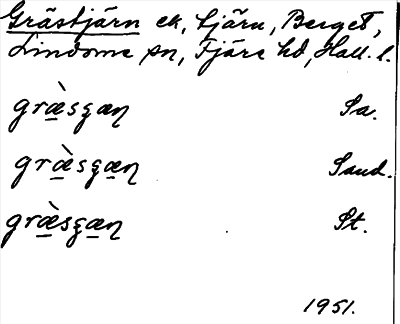 Grästjärn ek, tjärn, Berget,
Lindome sn, Fjäre hd, Hall. l.
græ̀sʒæɳ Sa.
græ̀sʒæɳ Sand.
græ̀sʒæɳ St.
1951.